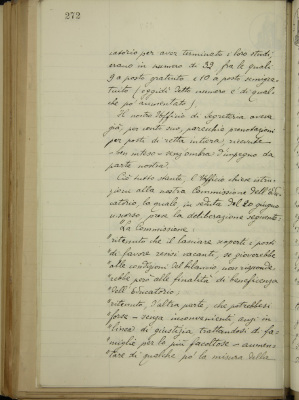 272
catorio per aver terminato i loro studi,
erano in numero di 33 fra le quali
9 a posto gratuito e 10 a posto semigra-
tuito (oggidì detto numero è di qual-
che po' aumentato).
Il nostro Ufficio di Segreteria aveva
già, per conto suo, parecchie prenotazioni
per posto di retta intera, riservate
- ben inteso - senz'ombra d'impegno da
parte nostra.
Ciò tutto stante, l'Ufficio chiese istru-
zioni alla nostra Commissione dell'Edu-
catorio, la quale, in seduta del 20 giugno
u. scorso prese la deliberazione seguente:
"La Commissione:
"ritenuto che il lasciare scoperti i posti
"di favore resisi vacanti, se gioverebbe
"alle condizioni del bilancio, non risponde-
"rebbe però alle finalità di beneficenza
"dell'Educatorio;
"ritenuto, d'altra parte, che potrebbesi
"forse - senza inconvenienti, anzi in
"linea di giustizia trattandosi di fa-
"miglie per lo più facoltose - aumen-
"tare di qualche po' la misura della